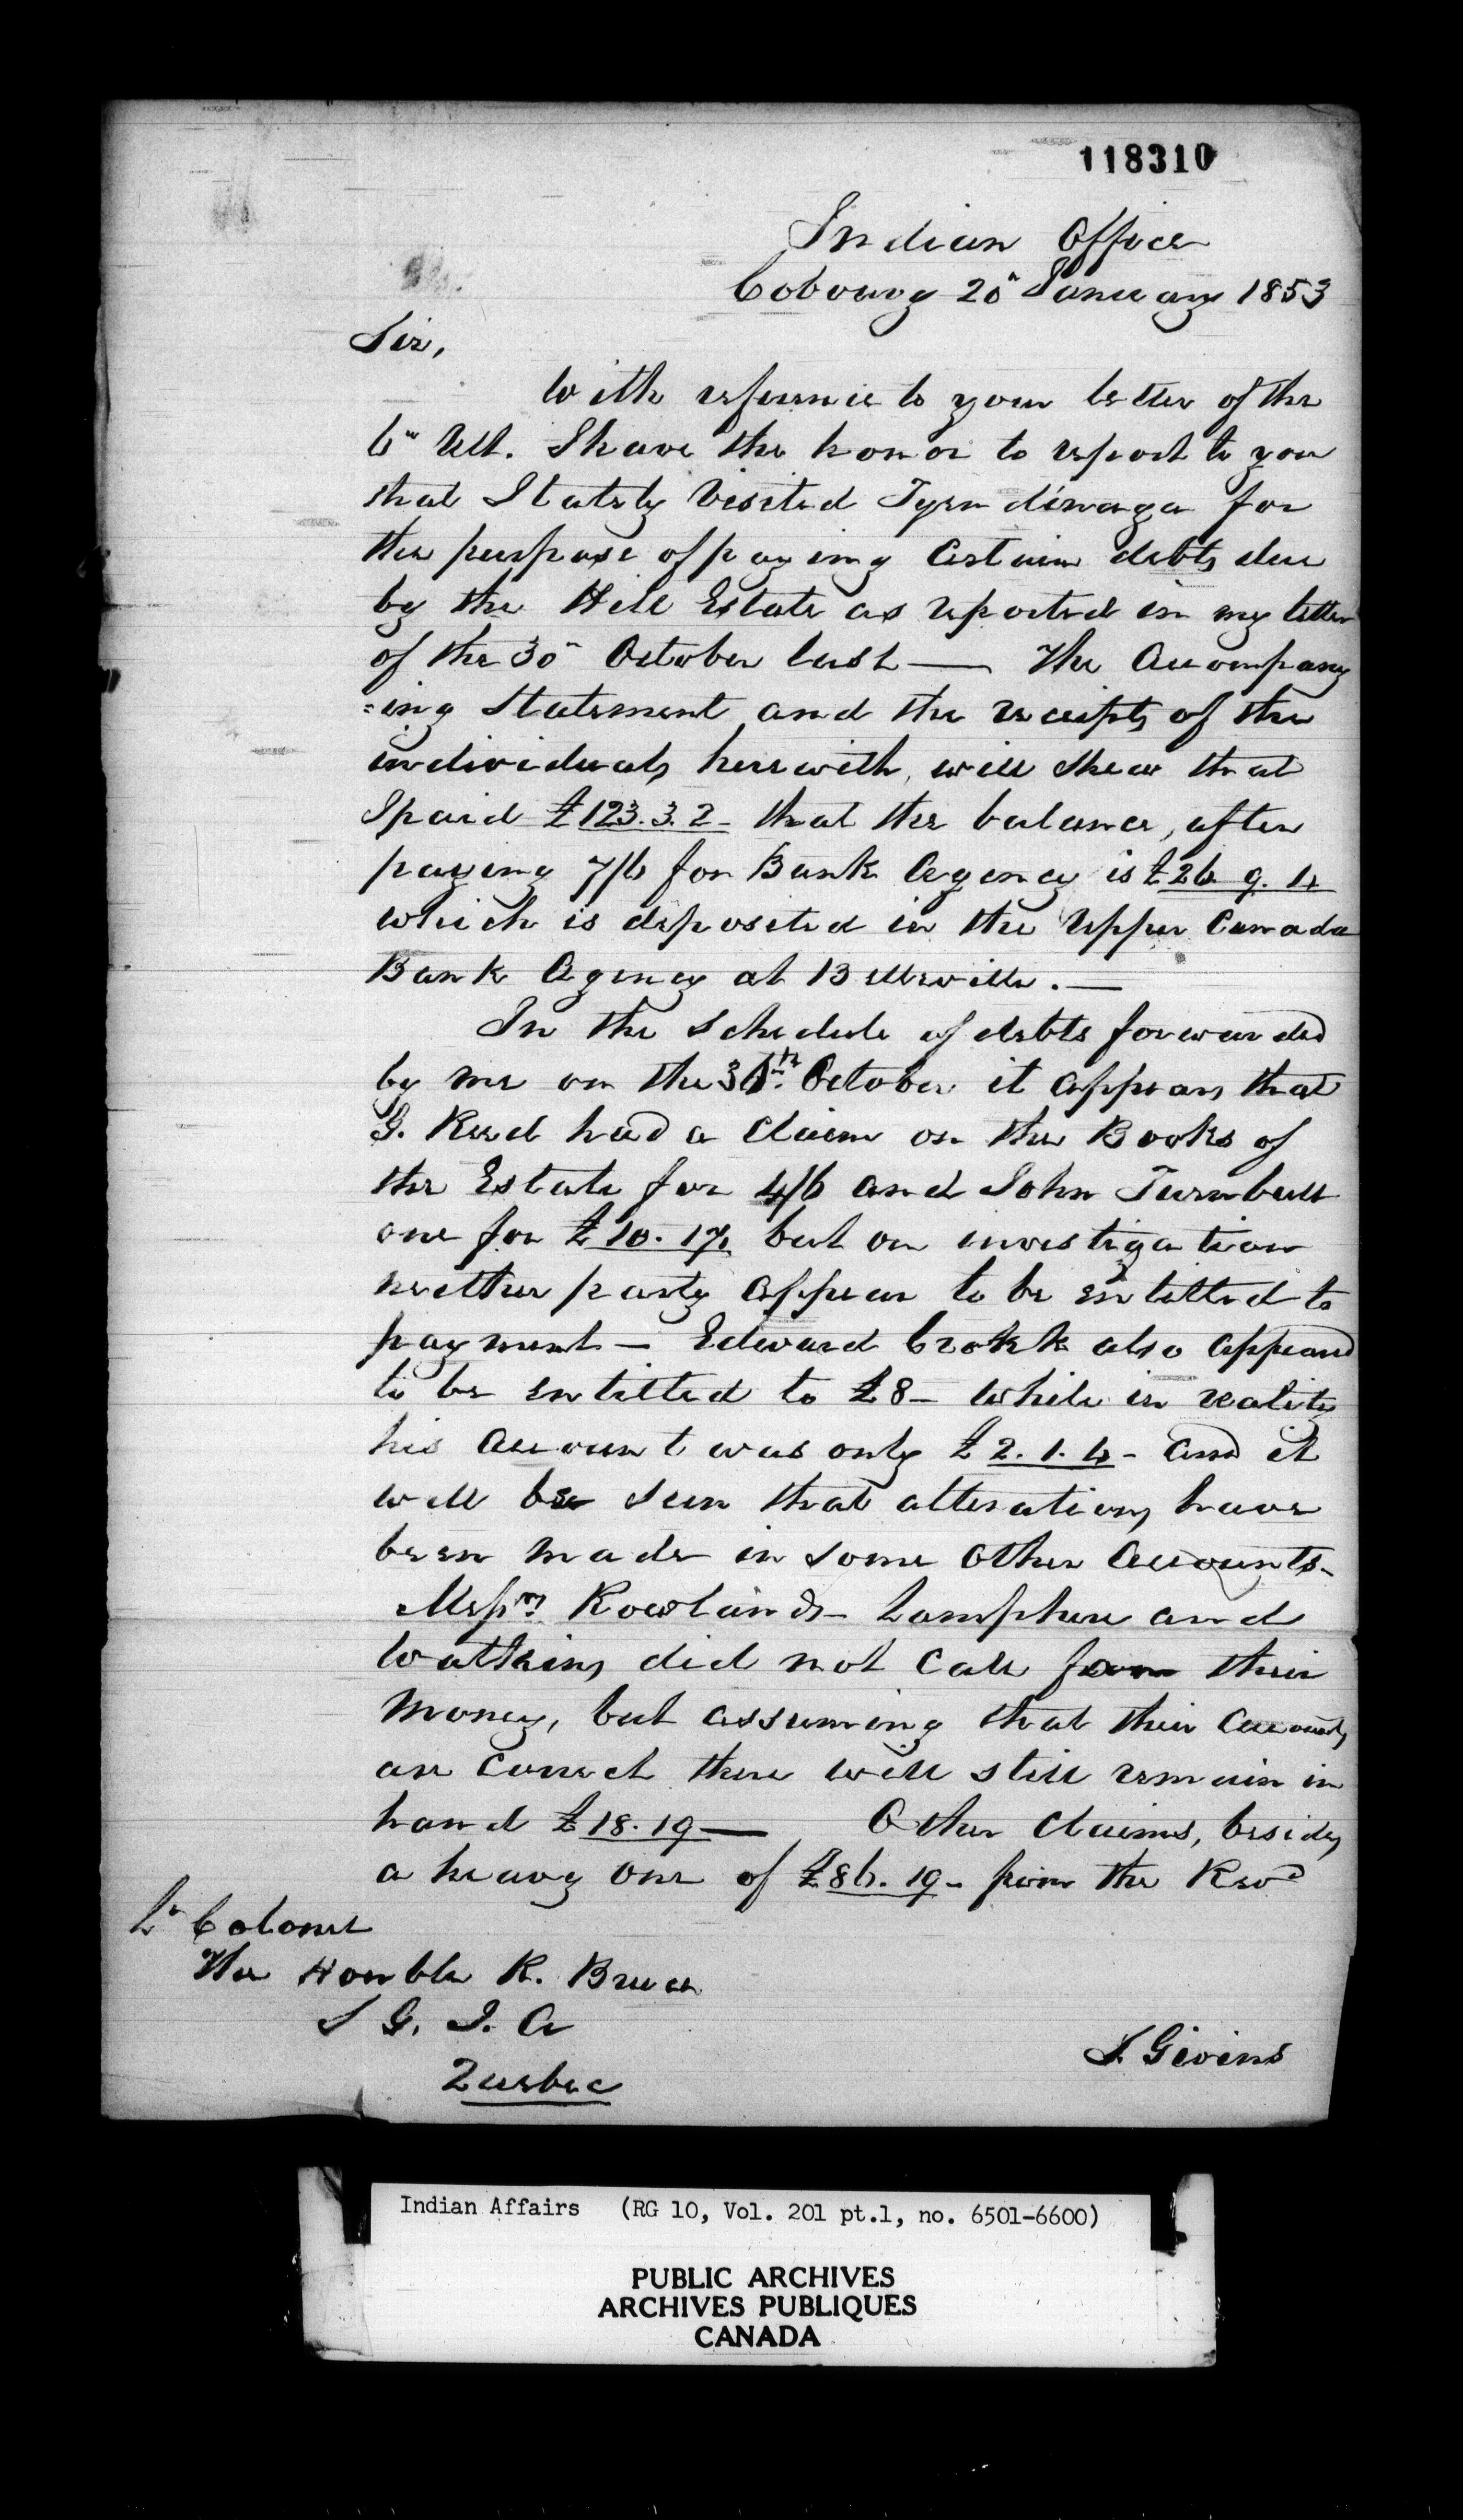 118310
Indian Office
Cobourg 20" January 1853
Sir,
With reference to your letter of the
6" Ult. I have the honor to report to you
that I lately visited Tyendinaga for
the purpose of paying certain debts due
by the Hill Estate as reported in my letter
of the 30" October last — The Accompany
=ing Statement and the receipts of the
individuals herewith, will shew that
I paid £123.3.2 - that the balance, after
paying 7/6 for Bank Agency is £26. 9. 4
which is deposited in the Upper Canada
Bank Agency at Belleville. —
In the Schedule of debts forwarded
by me on the 30th October it appears that
G. Reed had a claim on the Books of
the Estate for 4/6 and John Turnbull
one for £10. 17. but on investigation
neither party appear to be entitled to
payment — Edward Crokk also appeared
to be entitled to £8 — while in reality
his account was only £2. 1. 4 - and it
will be seen that alterations have
been made in some other Accounts -
Messrs Rowland - Lamphere and
Watkins did not call for their
Money, but assuming that their Accounts
are correct there will still remain in
hand £18. 19 — Other Claims, besides
a heavy one of £86. 19 - from the Revd
Lt Colonel
The Honble R. Bruce
S G. I. A
Quebec
S. Givins
Indian Affairs (RG 10, Vol. 201 pt.1, no. 6501-6600)
PUBLIC ARCHIVES
ARCHIVES PUBLIQUES
CANADA